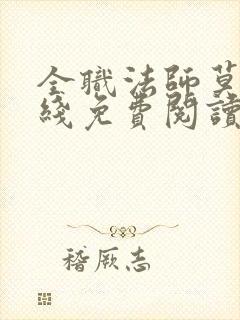 全職法師莫
綫免費閱讀
稽厥志